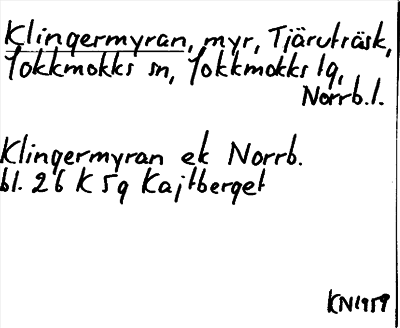 Klingermyran, myr, Tjäruträsk,
Jokkmokks sn, Jokkmokks lg,
Norrb.l.
Klingermyran ek Norrb.
bl. 26 K 5g Kajtberget
KN 1959